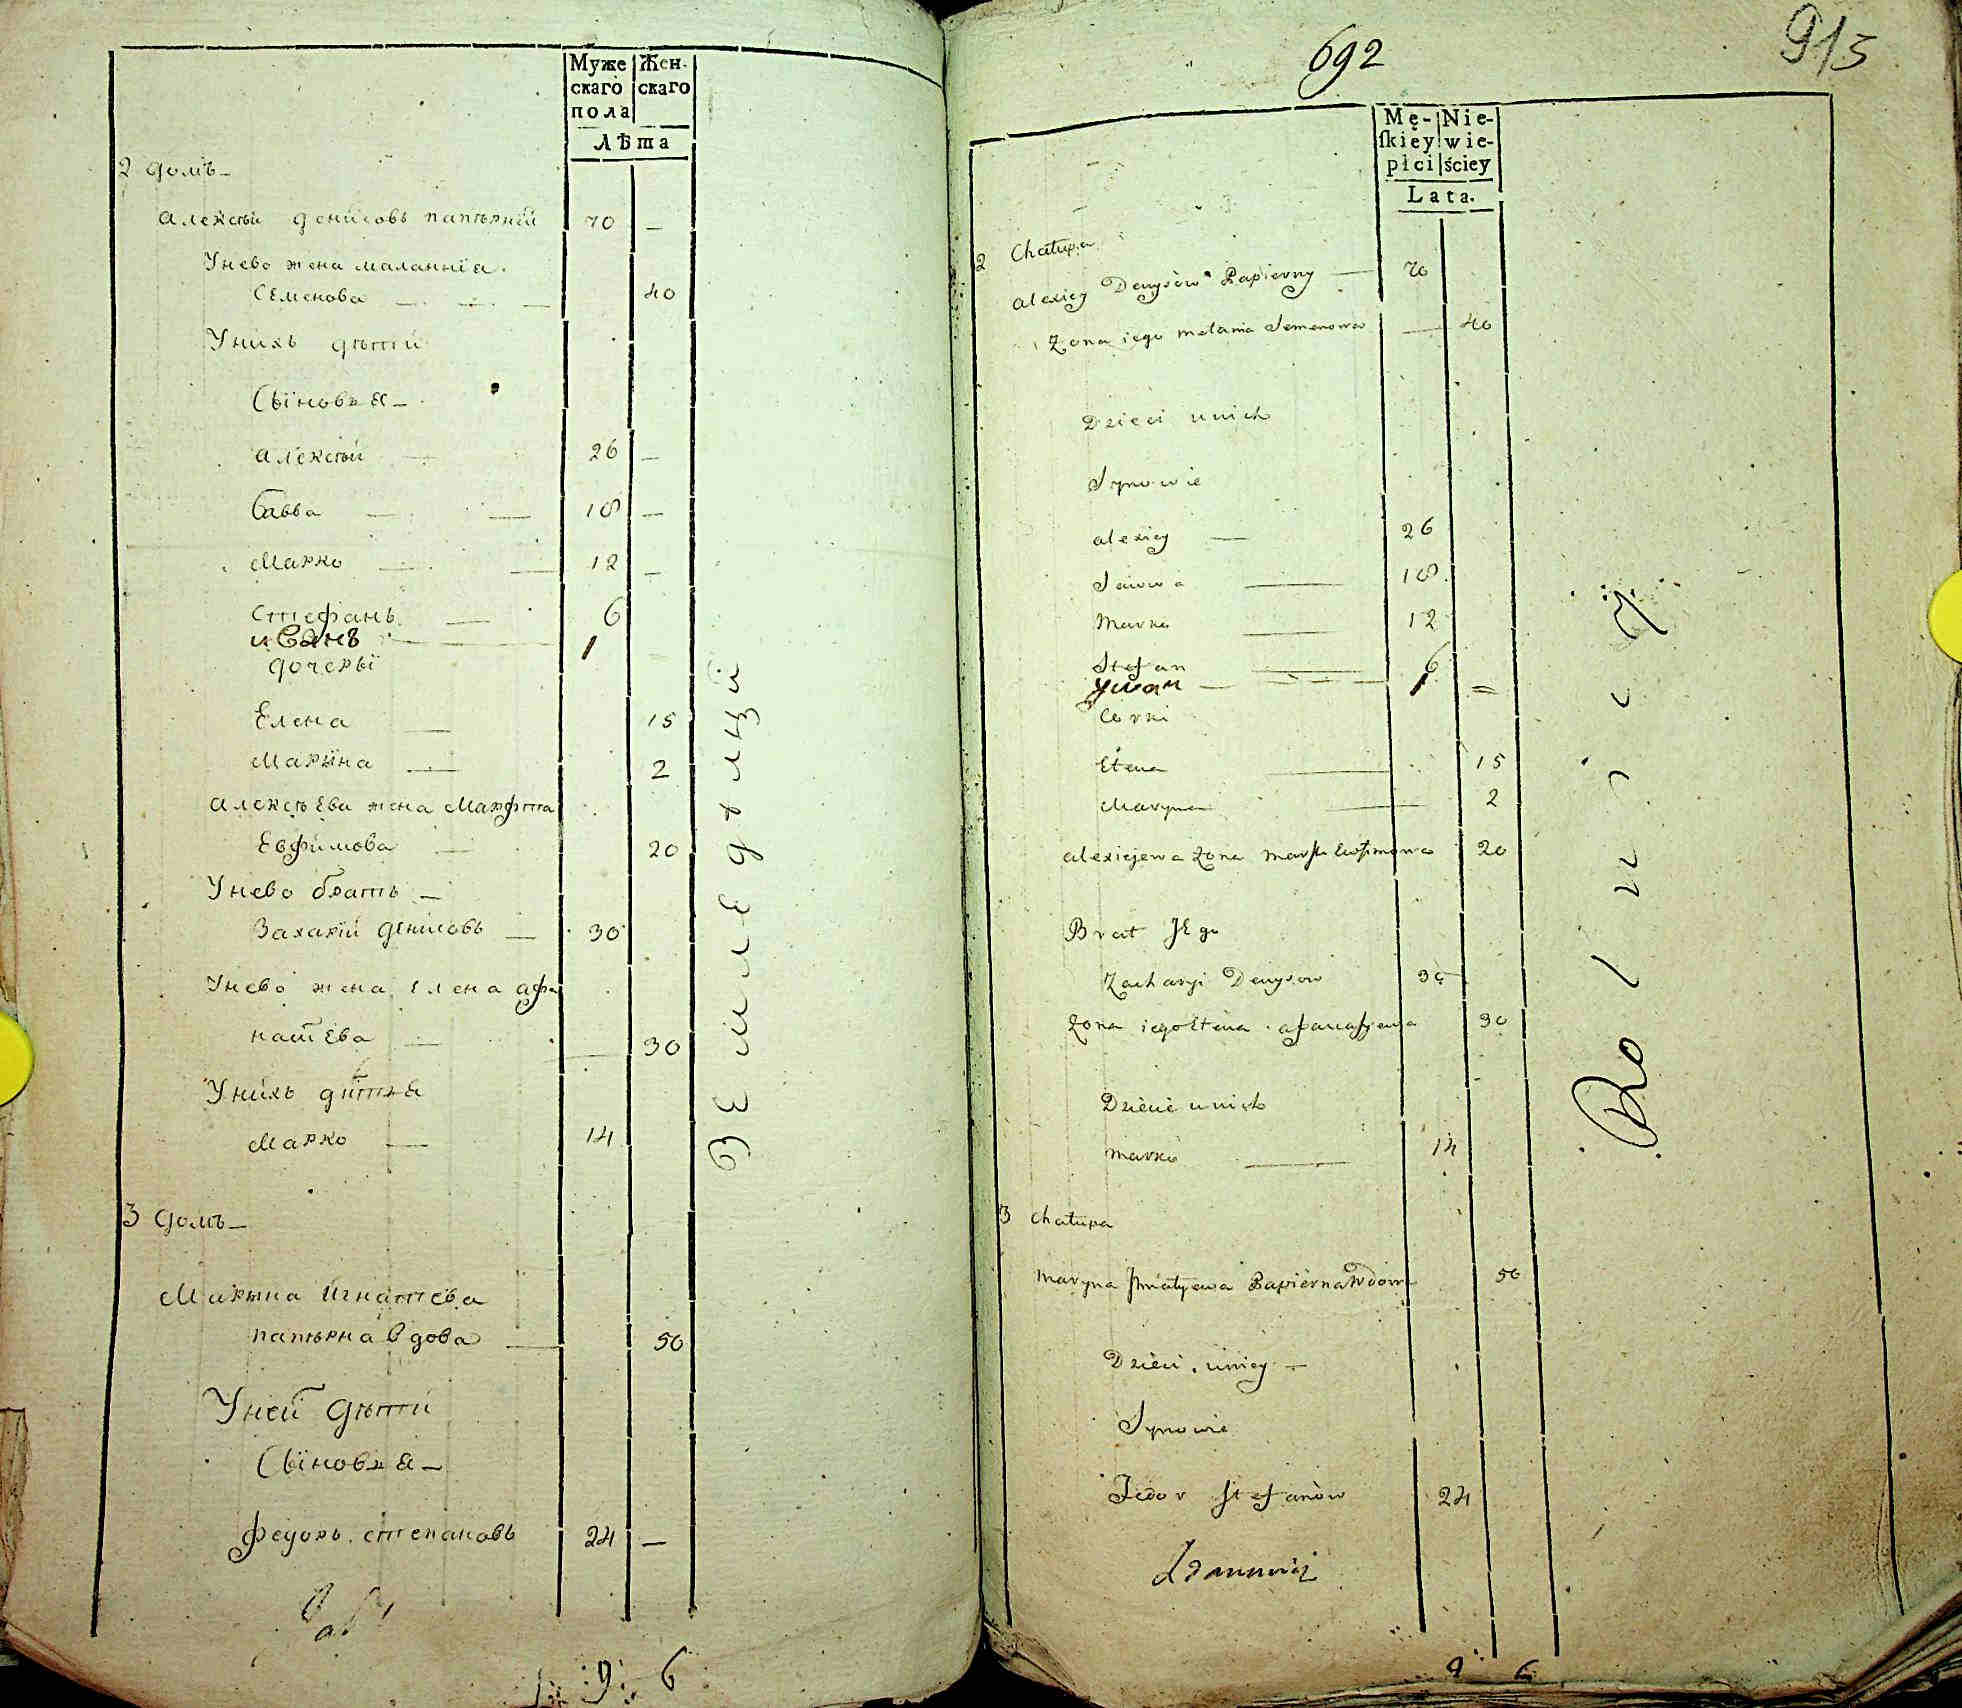 Муже Жен-
скаго скаго
пола
Лѣта
2 домъ
Алексѣй Денисовъ папѣрний 70 —
Унево жена маланнїа
Семенова — 40
Унихъ дѣти
Сыновья
Алексѣй — 26 —
Савва — 18 —
Марко — 12 —
Стефанъ — 6
иванъ — 1
дочеры
Елена — 15
Марына — 2
Алексѣева жена Марфта
Евфимова — 20
Унево братъ —
Захарїй Денисовъ — 30
Унево жена Елена афа
настева — 30
Унихъ дитя
Марко — 14
3 домъ
Марына Игнатева
папѣрна вдова — 50
Уней дѣти
Сыновья
Федоръ степановъ 24 —
Земледѣлцы
9 6
692
913
Mę- Nie-
ſkiéy wie-
płci ściey
Lata.
2 Chałupa
Alexiey Denysów Papierny — 70
Zona iego melania Semenowa — 40
Dzieci unich
Synowie
alexiey — 26
Sawwa — 18
Marko — 12
Stefan — 6
Ywan — 1 =
Corki
Elena — 15
Maryna — 2
alexiejewa żona marfta Eufimowa 20
Brat Jego
Zacharyi Denysow 30
żona iego Elena afanaſyewa 30
Dziecie unich
marko — 14
3 chałupa
maryna Ihnatyewa Papierna Wdowa 50
Dzieci uniey —
Synowie
Fedor Stefanów 24
Rolnicy
9 6